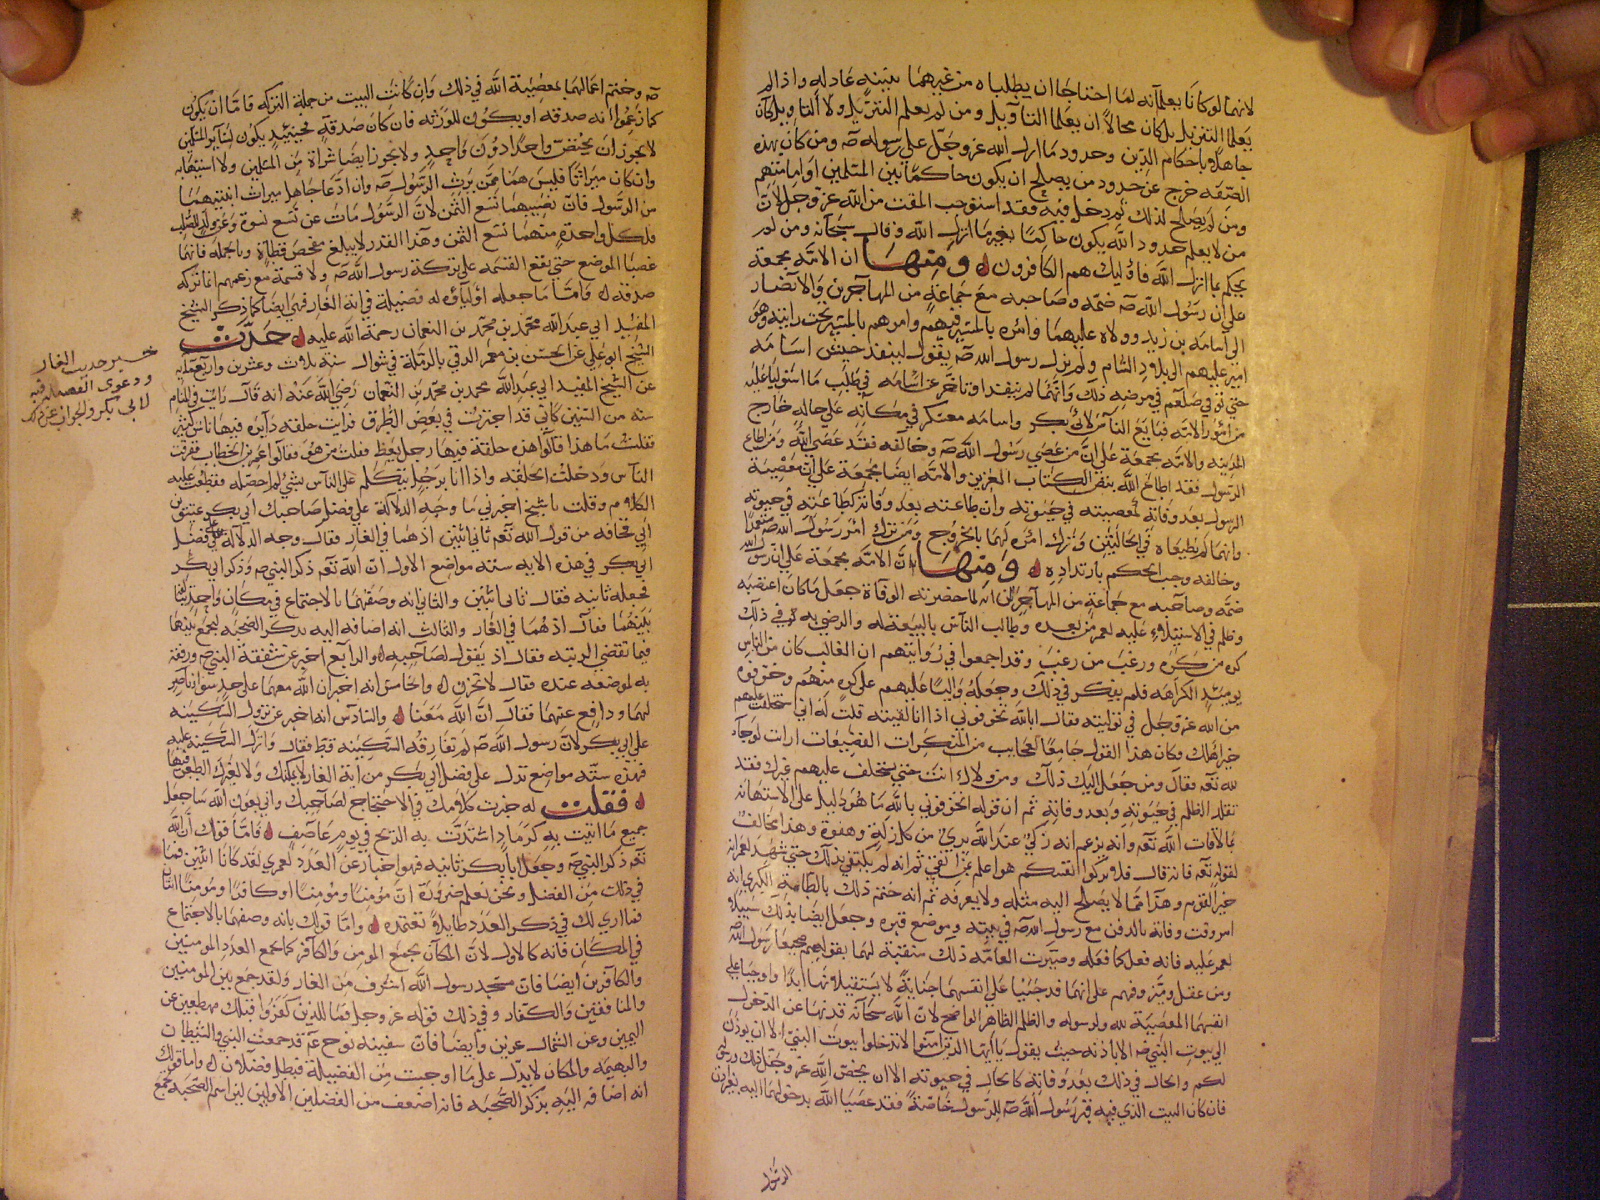 لانهما لو كانا يعلمانه لما احتاجا ان يطلباه من غيرهما ببينة عادله واذا لم
يعلما التنزيل بل كان محالاً ان يعلما التاويل ومن لم يعلم التنزيل ولا التاويل كان
جاهلاً باحكام الدين وحدود ما انزل الله عز وجل على رسوله صه ومن كان بهذه
الصفه خرج عن حدود من يصلح ان يكون حاكماً بين المسلمين او امامتهم
ومن لم يصلح لذلك ثم دخل فيه فقد استوجب المقت من الله عز وجل لان
من لا يعلم حدود الله يكون حاكماً بغير ما انزل الله وقال سبحانه ومن لم
يحكم بما انزل الله فاوليك هم الكافرون ومنها ان الامه مجمعة
على ان رسول الله صه ضمه وصاحبه مع جماعة من المهاجرين والانصار
الى اسامه بن زيد وولاه عليهما وامره بالمسير فيهم وامرهم بالمسير تحت رايته وهو
امير عليهم الى بلاد الشام ولم يزل رسول الله صه يقول لينفذ جيش اسامه
حتى توفي صلعم في مرضه ذلك وانهما لم ينفذا وتاخرا عن اسامه في طلب ما استوليا عليه
من امور الامه فبايع الناس لابي بكر واسامه معسكر في مكانه على حاله خارج
المدينه والامه مجمعة على ان من عصى رسول الله صه وخالفه فقد عصى الله ومن اطاع
الرسول فقد اطاع الله بنص الكتاب العزيز والامه ايضا مجمعة على ان معصية
الرسول بعد وفاته كمعصيته في حيوته وان طاعته بعد وفاته كطاعته في حيوته
وانهما لم يطيعاه في الحالتين وترك امره لهما بالخروج ومن ترك امر رسول الله صه متعمدا
وخالفه وجب الحكم بارتداده ومنها ان الامه مجمعة على ان رسول الله
ضمه وصاحبه مع جماعة من المهاجرين انه لما حضرته الوفاة جعل ما كان اغتصبه
وظلم في الاستيلاء عليه لعمر من بعده وطالب الناس بالبيعة له والرضى به في ذلك
كره من كره ورغب من رغب وقد اجمعوا في روايتهم ان الغالب كان من الناس
يوميذ الكراهه فلم يفكر في ذلك وجعله واليا عليهم على كره منهم وخوفوه
من الله عز وجل في توليته فقال ابالله تخوفوني اذا انا لقيته قلت له اني استخلفت عليهم
خير اهلك وكان هذا القول جامعا لعجايب من المنكرات الفضيعات ارايت لو اجابه
الله تعه فقال ومن جعل اليك ذلك ومن ولاك انت حتى تستخلف عليهم غيرك فقد
تقلد الظلم في حيوته وبعد وفاته ثم ان قوله اتخوفوني بالله ما هو دليل على الاستهانه
بملاقات الله تعه وانه يزعم انه زكي عند الله بري من كل زلة وهفوة وهذا يخالف
لقوله تعه فانه قال فلا تزكوا انفسكم هو اعلم بمن اتقى ثم انه لم يكتفي بذلك حتى شهد لعمر انه
خير القوم وهذا مما لا يصلح اليه مثله ولا يعرفه ثم انه ختم ذلك بالطامة الكبرى انه
امر وقت وفاته بالدفن مع رسول الله صه في بيته وموضع قبره وجعل ايضا بذلك سبيلا
لعمر عليه فانه فعل كما فعله وصيرت العامه ذلك منقبة لهما بقولهم ضجيعا رسول الله
ومن عقل وميز وفهم على انهما قد جنيا على انفسهما جناية لا يستقيلانها ابدا واوجبا على
انفسهما المعصية لله ولرسوله والظلم الظاهر الواضح لان الله سبحانه قد نها عن الدخول
الى بيوت النبي صه الا باذنه حيث يقول يا ايها الذين امنوا لا تدخلوا بيوت النبي الا ان يوذن
لكم والحال في ذلك بعد وفاته كالحال في حيوته الا ان يخص الله عز وجل ذلك
فان كان البيت الذي فيه قبر رسول الله صه للرسول خاصة فقد عصيا الله بدخولهما اليه بغير اذن
الرسول
صه وختم اعمالهما بمعصية الله في ذلك وان كانت البيت من جملة التركه فاما ان يكون
كما زعموا انه صدقه او يكون للورثه فان كان صدقة فحينيذ يكون لساير المسلمين
لا يجوز ان يختص واحدا دون واحد ولا يجوز ايضا شراة من المسلمين ولا استيهابه
وان كان ميراثا فليس هما ممن يرث الرسول صه وان ادعا جاهل ميراث ابنتيهما
من الرسول فان نصيبهما تسع الثمن لان الرسول مات عن تسع نسوة وعن ولد للصلب
فلكل واحدة منهما تسع الثمن وهذا القدر لا يبلغ مفحص قطاة وبالجمله فانهما
غصبا الموضع حتى تقع القسمه على تركة رسول الله صه ولا قسمة مع زعمهم انما تركه
صدقه واما ما جعله اولياؤه له فضيلة في اية الغار فهي ايضا كما ذكر الشيخ
المفيد ابي عبد الله محمد بن محمد بن النعمان رحمة الله عليه حدث
الشيخ ابو علي الحسن بن معمر الرقي بالرملة في شوال سنة ثلاث وعشرين واربعمايه
عن الشيخ المفيد ابي عبد الله محمد بن محمد بن النعمان رضي الله عنه انه قال رايت في المنام
سنه من السنين كاني قد اجتزت في بعض الطرق فرايت حلقه دايره فيها ناس كثير
فقلت ما هذا قالوا هذه حلقة فيها رجل يعظ فقلت من هو فقالوا عمر بن الخطاب ففرقت
الناس ودخلت الحلقه واذا انا برجل يتكلم على الناس بشي لم احصله فقطعت عليه
الكلام وقلت يا شيخ اخبرني ما وجه الدلالة على فضل صاحبك ابي بكر عتيق بن
ابي قحافه من قول الله تعه ثاني اثنين اذ هما في الغار فقال وجه الدلالة على فضل
ابي بكر في هذه الايه سته مواضع الاول ان الله تعه ذكر النبي صه وذكر ابي بكر
فجعله ثانيه فقال ثاني اثنين والثاني انه وصفهما بالاجتماع في مكان واحد
بينهما فقال اذ هما في الغار والثالث انه اضافه اليه بذكر الصحبه ليجمع بينهما
فيما تقضي الرتبه فقال اذ يقول لصاحبه والرابع اخبر عن شفقة النبي صه ورفقه
به لموضعه عنده فقال لا تحزن والخامس انه اخبر ان الله معهما على حد سوا ناصر
لهما ودافع عنهما فقال ان الله معنا والسادس انه اخبر عن نزول السكينه
على ابي بكر لان رسول الله صه لم تفارقه السكينه قط فقال وانزل السكينه عليه
فهذه سته مواضع تدل على فضل ابي بكر من اية الغار لا يمكنك ولا لغيرك الطعن فيها
فقلت له حررت كلامك في الاحتجاج لصاحبك واني بعون الله ساجعل
جميع ما اتيت به كرماد اشتدت به الريح في يوم عاصف فاما قولك ان الله
تعه ذكر النبي صه وجعل ابا بكر ثانيه فهو اخبار عن العدد لعمري لقد كانا اثنين فما
في ذلك من الفضل ونحن نعلم ضرورة ان مؤمنا ومؤمنا او كافرا ومؤمنا اثنان
فما ارى لك في ذكر العدد طايلا تعتمده واما قولك بانه وصفهما بالاجتماع
في المكان فانه كالاول لان المكان يجمع المومن والكافر كما يجمع العدد المومنين
والكافرين ايضا فان مسجد رسول الله اشرف من الغار ولقد جمع بين المومنين
والمنافقين والكفار وفي ذلك قوله عز وجل فما للذين كفروا قبلك مهطعين عن
اليمين وعن الشمال عزين وايضا فان سفينه نوح عم قد جمعت النبي والشيطان
والبهيمه والمكان لا يدل على ما اوجبت من الفضيلة فبطل فضلان واما قولك
انه اضافه اليه بذكر الصحبه فانه اضعف من الفضلين الاولين لان اسم الصحبه يجمع
خبر حديث الغار
ودعوى الفضيله فيه
لابي بكر والجواب عن ذلك